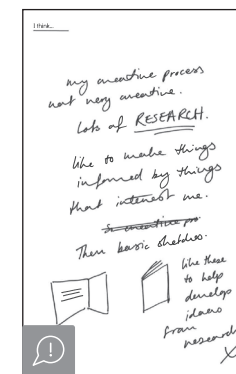 I think...
my creative process
not very creative.
Lots of RESEARCH.
like to make things
informed by things
that interest me.
Then basic sketches.
like these
to help
develop
ideas
from
research